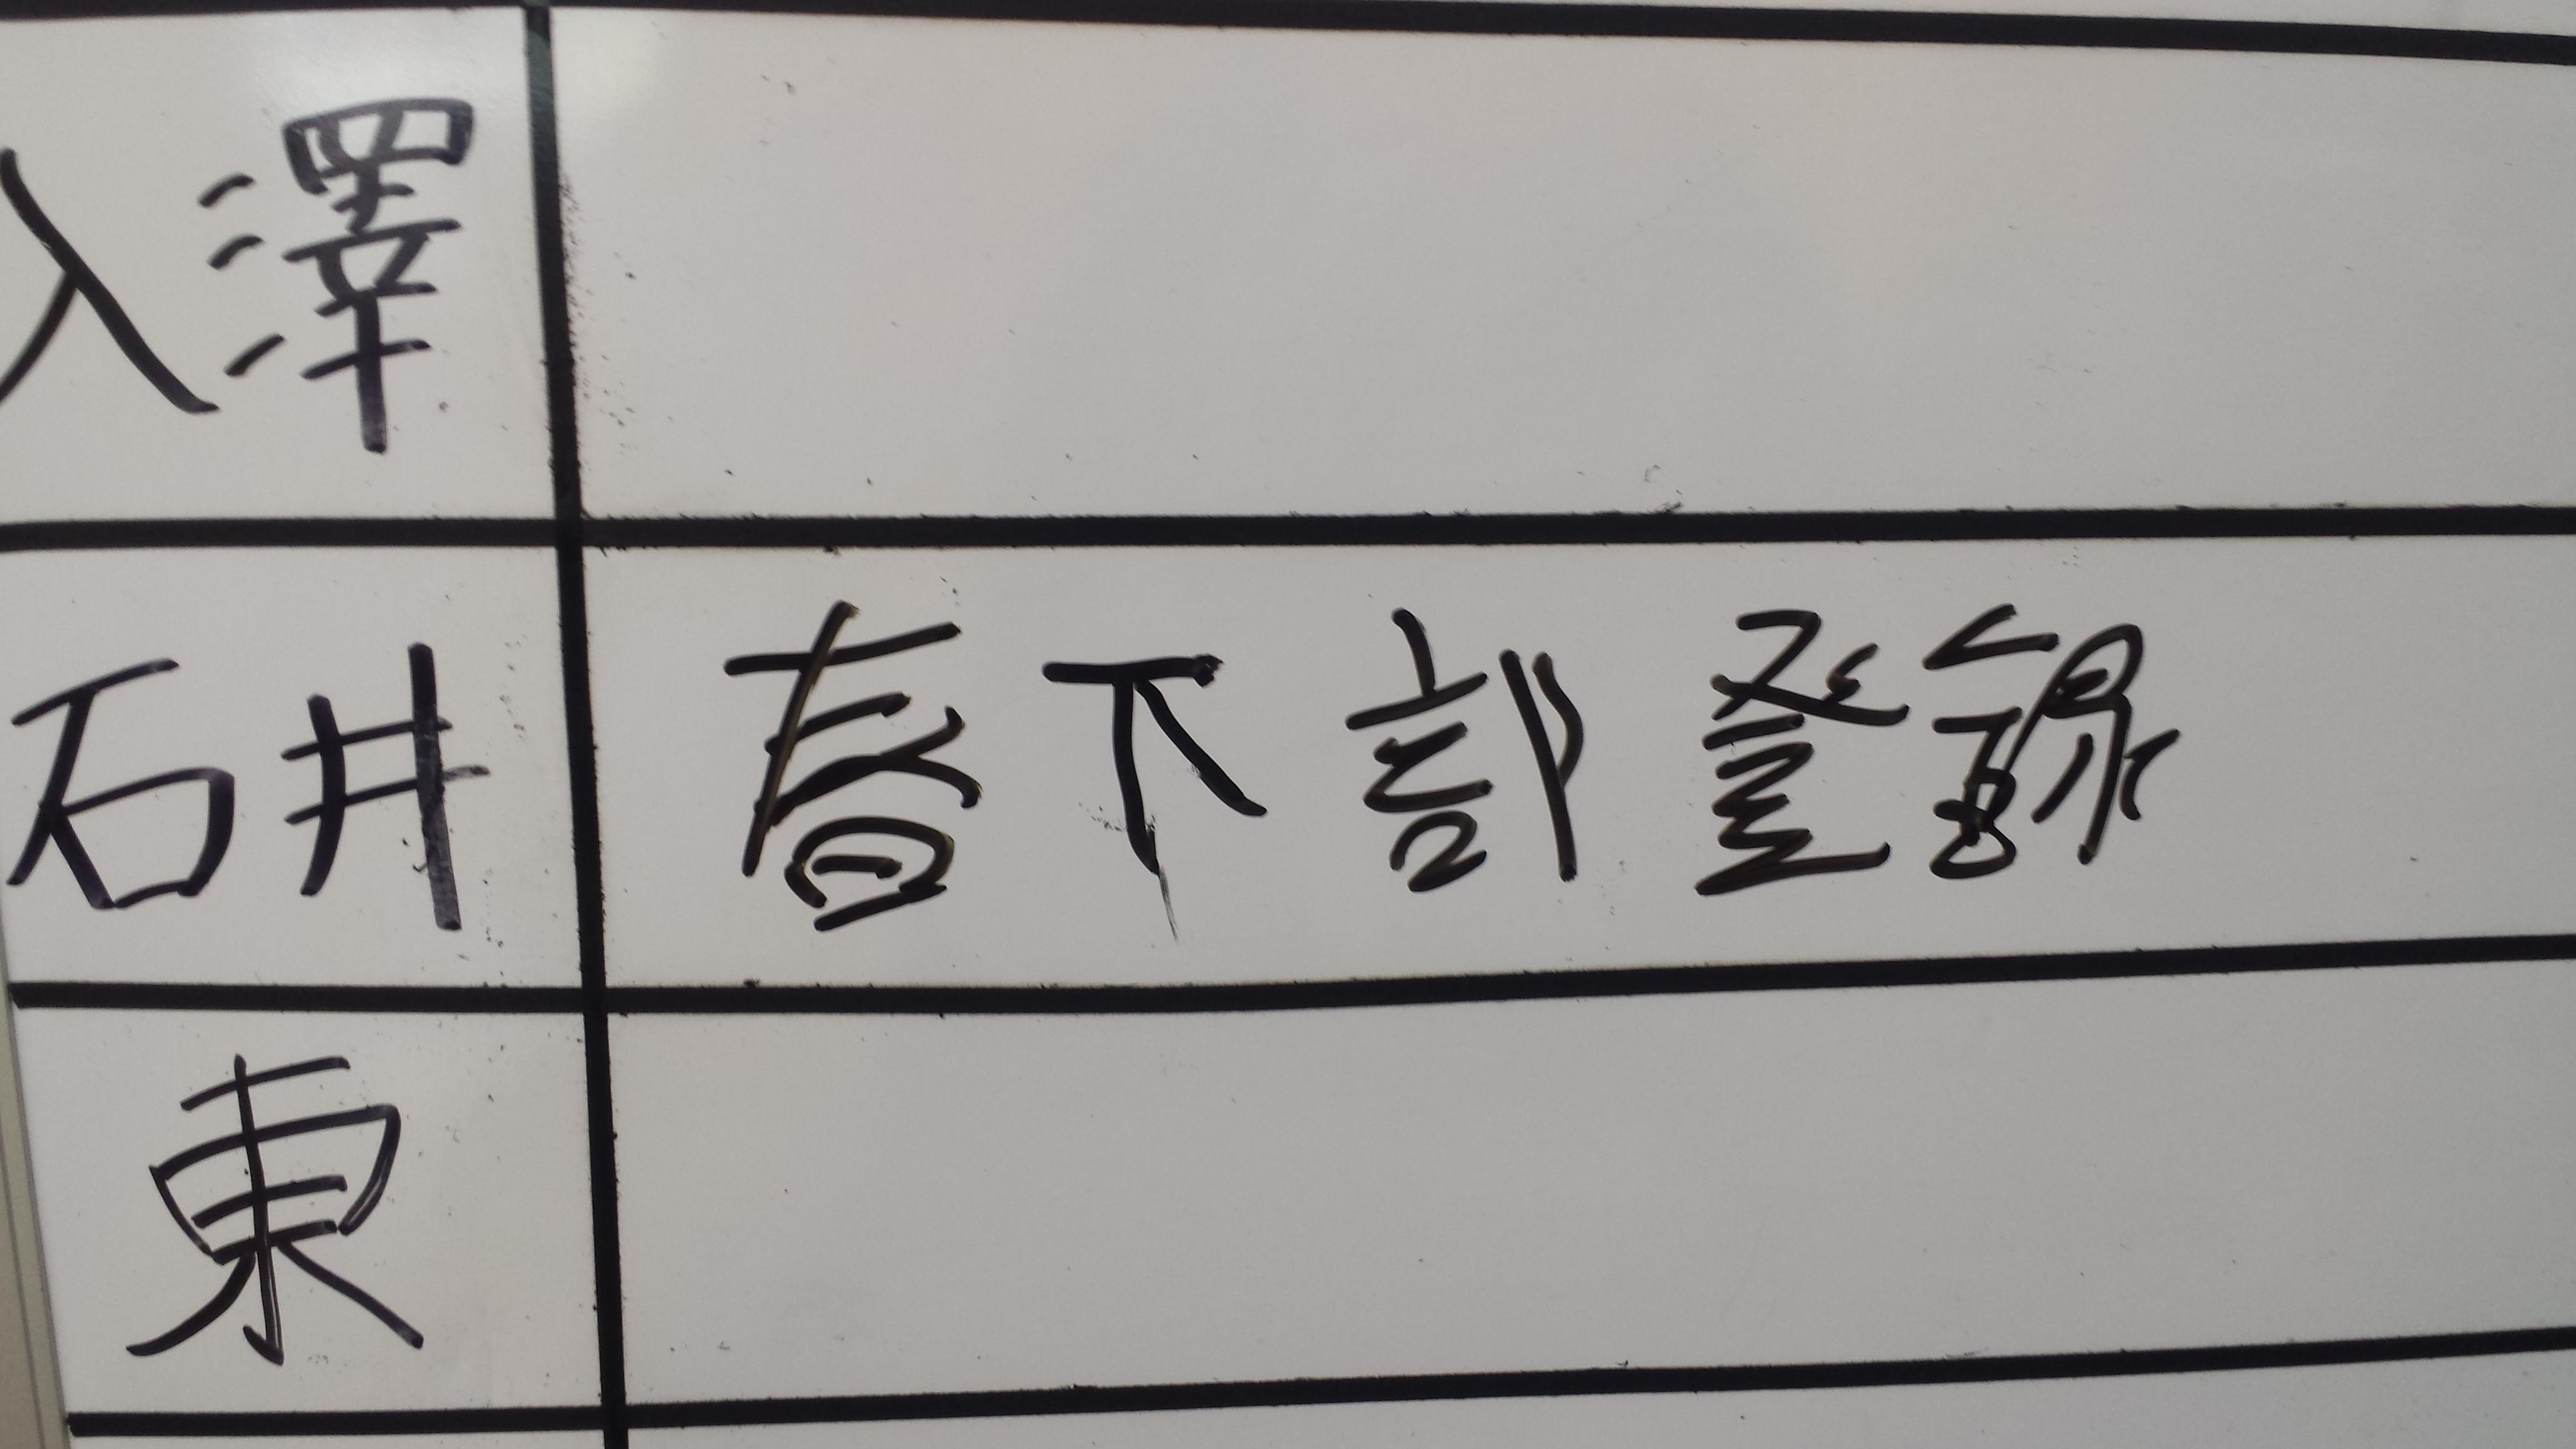 入澤
石井 春下部登録
東